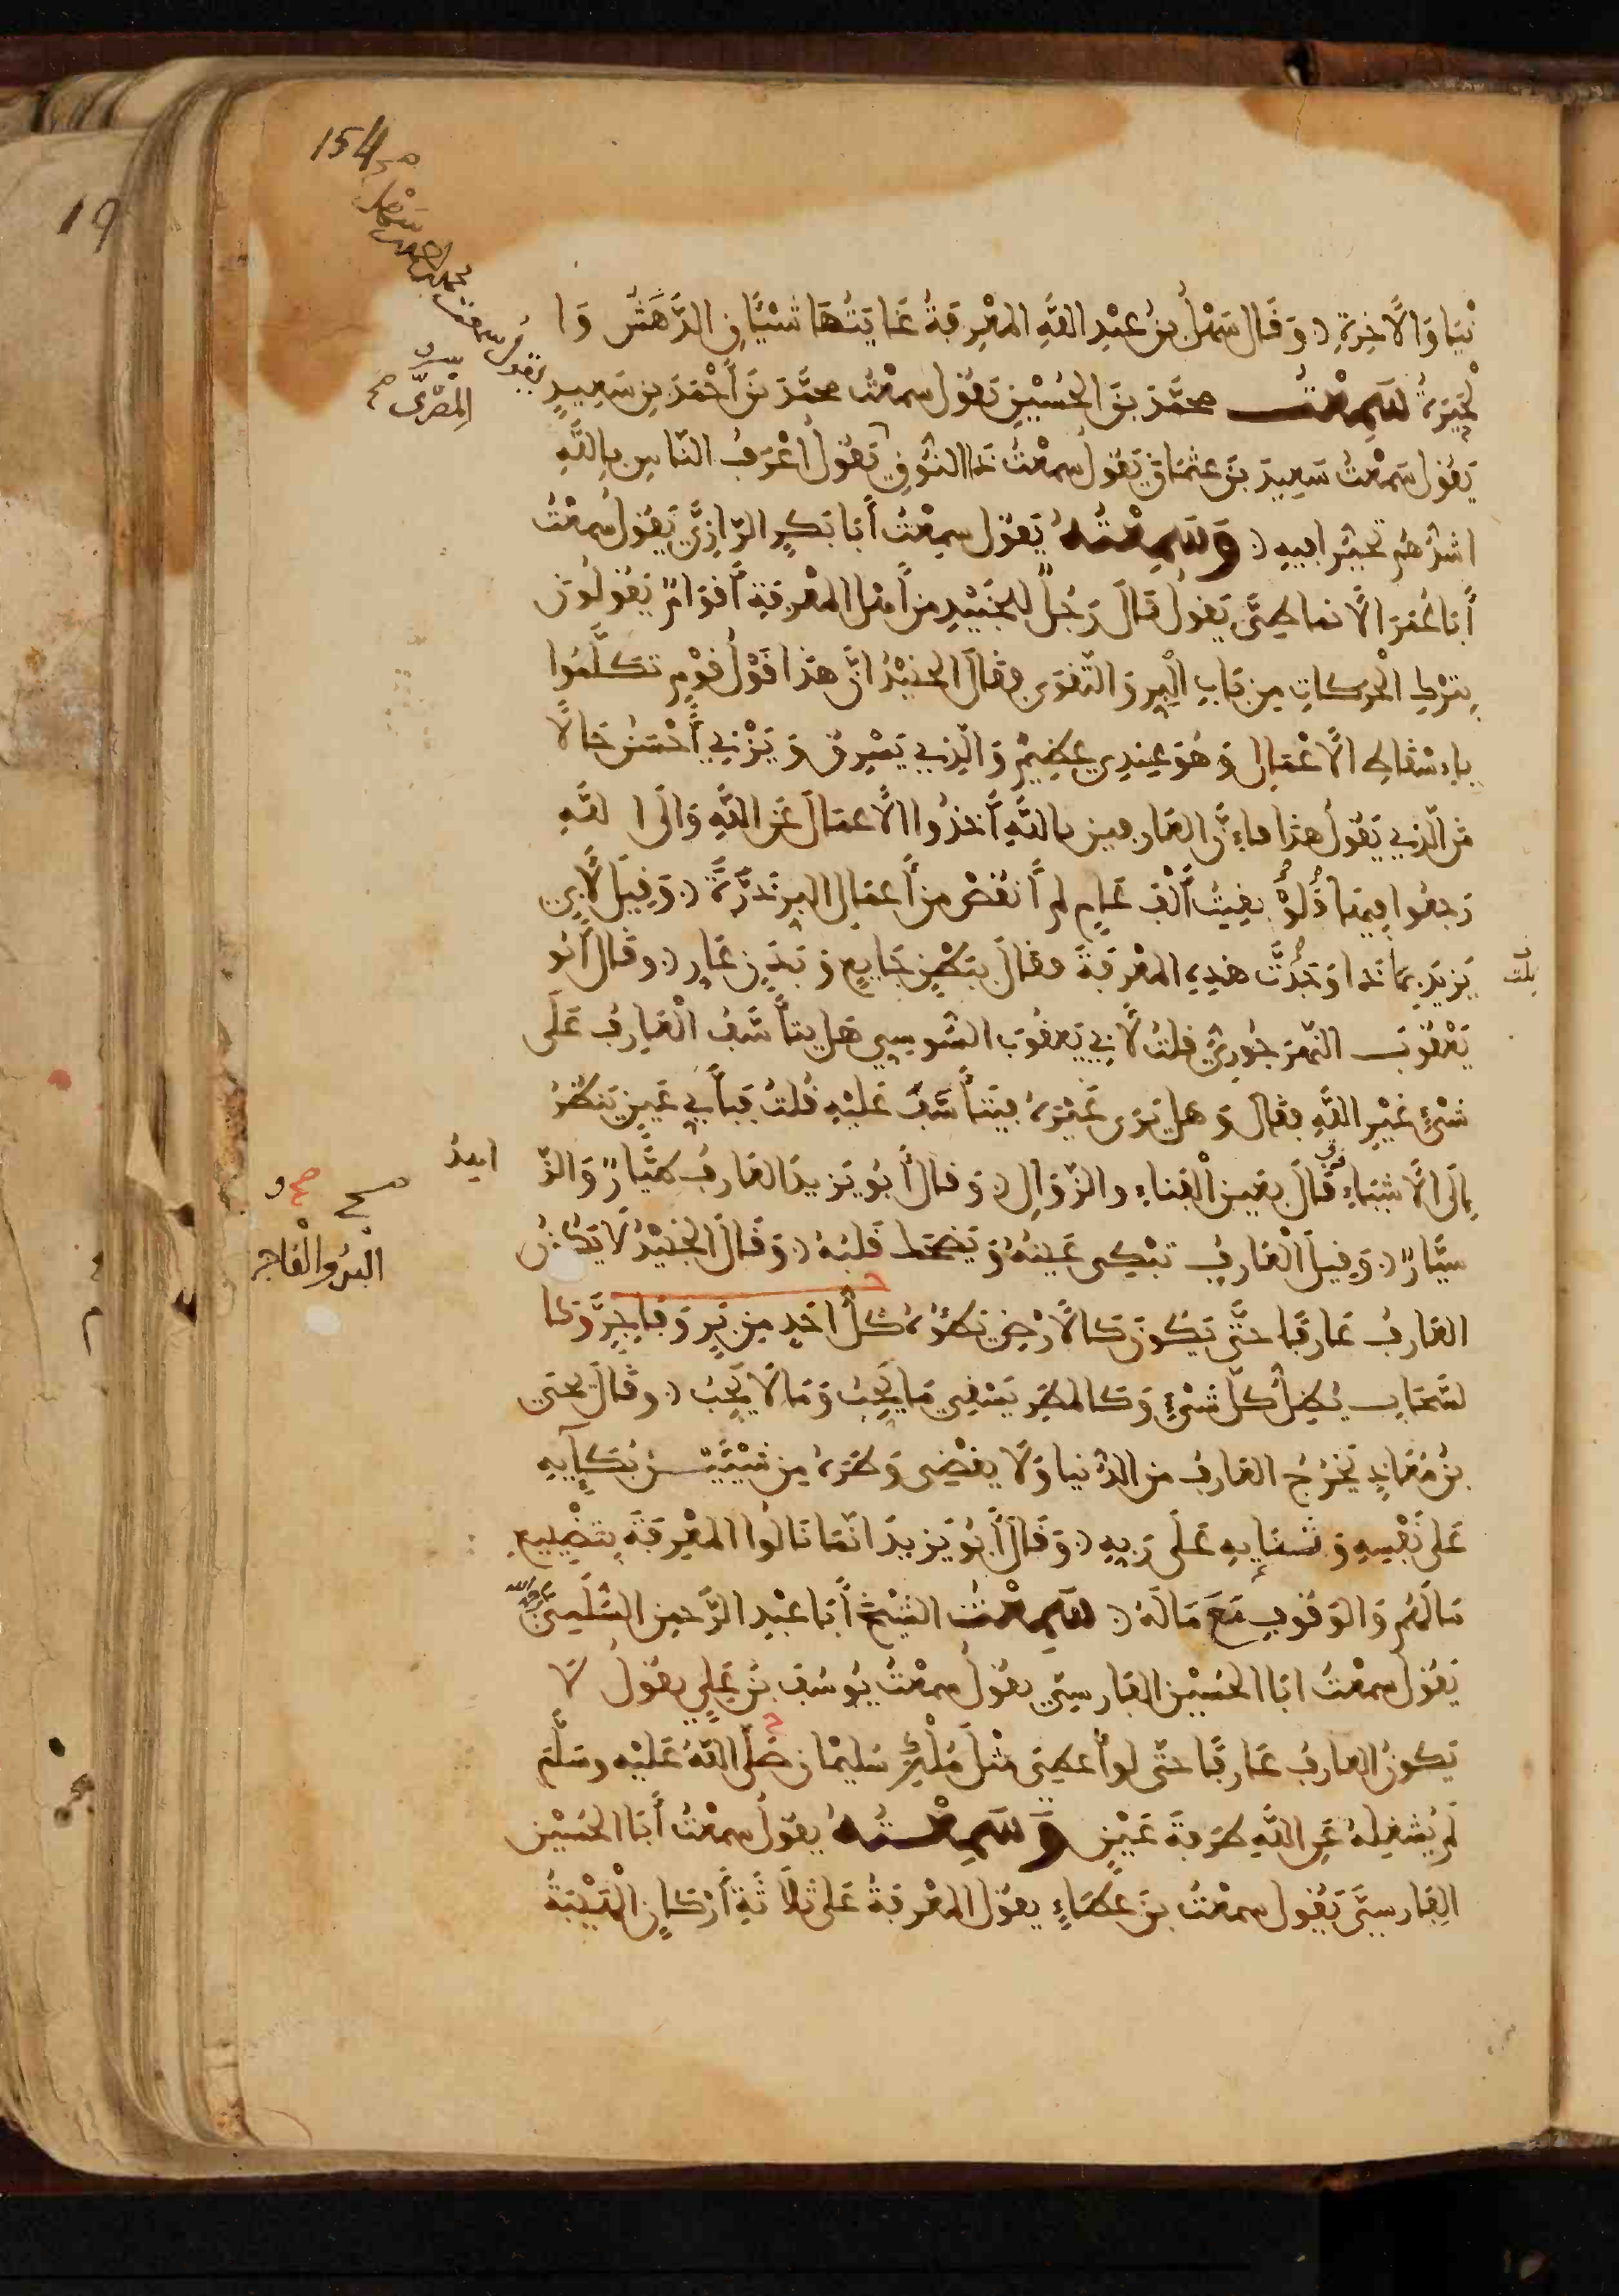 154
19
نْيَا وَالَاخِرَةِ وَقَالَ سَهْلُ بنُ عبْدِ اللَّهِ المعْرِفَةُ غَايَتُهَا شَيْئَانِ الدَّهَشُ وَا
لْحَيْرَةُ سَمِعْتُ محمَّدَ بنَ الحُسَيْنِ يَقُول سمعْتُ محمَّدَ بنَ أَحْمَدَ بنِ سَعِيدٍ
يقول سمعت محمد بن احمد بن سهل
المِصْرِيَّ صح
يَقُول سَمعْتُ سَعِيدَ بنَ عثمَانَ يَقُولُ سمعْتُ ذَا النُّونِ يَقُولُ أَعْرَفُ النَّاسِ بِاللَّهِ
اشدُّهُم تحَيُّرا فِيهِ وَسَمِعْتُهُ يَقول سمِعْتُ أَبَا بَكرٍ الرَّازِيَّ يَقُولُ سمعْتُ
أَبَا عُمَرَ الَانطاكِيَّ يَقولُ قَالَ رَجُلٌ للجُنَيْدِ من أَهل المعْرِفَةِ أَقوَامٌ يَقُولُونَ
بِتَرْكِ الْحركَاتِ مِن بَابِ الْبِرِ وَالتَّقوَى فقَالَ الجنيْدُ انَّ هذَا قَوْل قَوْمٍ تكَلَّمُوا
بِاسْقَاطِ الَاعْمَالِ وَهُوَ عِندِي عظِيمٌ وَالذِي يَسْرِقُ وَيَزْنِي أَحْسَنُ حَالًا
مِنَ الذِي يَقُولُ هذا فإنَّ العَارِفِينَ باللَّهِ أَخذُوا الَاعمَالَ عَنِ اللَّهِ وَالَى ا للَّهِ
رَجعُوا فِيهَا وَلَوْ بقِيتُ أَلْفَ عَامٍ لم أَنقُصْ من أَعمَالِ البِر ذَرَّةً وَقِيلَ لَابِي
يَزيدَ بمَاذَا وَجَدتَّ هَذِهِ المعْرِفَةَ فقالَ ببَطْنٍ جَايِعٍ وَبَدَنٍ عَارٍ وقَالَ أَبُو
يَعْقُوبَ النَّهرَجُورِيُّ قلتُ لَابِي يَعقُوبَ السُّوسِيِ هَل يتأَسَّفُ الْعَارِفُ عَلَى
شيْءٍ غَيْرِ اللَّهِ فقَالَ وَهل يَرَى غَيْرَهُ فيَتأَسَّفُ عَلَيْهِ قُلتُ فبأَيِ عَيْنٍ يَنظُرُ
إلَى الَاشيَاءِ فقَالَ بعَينِ الْفَناءِ والزَّوَالِ وَقالَ أَبُو يَزيدَ العَارِفُ طَيَّارٌ وَالزَّ
اهد
سَيَّارٌ وَقِيلَ الْعَارِفُ تبْكِى عَيْنُهُ وَيَضحَك قَلبُهُ وَقَالَ الجُنَيْدُ لَا يَكُونُ
صح
البَرُّ وَالْفَاجر
العَارفُ عَارفًا حتَّى يَكُونَ كَالَارْضِ يَطَؤُهُ كُلُّ احَدٍ مِن بَرٍ وَفَاجِرٍ وَكَا
لسَّحَابِ يُظِلُّ كلَّ شَيْءٍ وَكَالمطَرِ يَسْقِي مَا يُحِبُّ وَمَا لَا يُحِبُّ وقَالَ يحيَى
بنُ مُعَاذٍ يَخْرُجُ العَارفُ من الدُّنيا وَلَا يقْضِى وَطَرَهُ مِن شَيْئَيْنِ بُكَايِهِ
عَلى نَفْسِهِ وَثَنَايِهِ عَلَى رَبِهِ وَقَالَ أَبُو يَزيدَ انَّمَا نَالُوا المعْرِفَةَ بِتَضْيِيعِ
مَا لَهُم وَالوقُوفِ مَعَ مَا لَهُ سَمِعْتُ الشَّيْخَ أَبَا عبْدِ الرَّحمنِ السُّلَمِيَّ
يَقُول سمعْتُ ابَا الحُسَيْنِ الفَارسِيَّ يقُولُ سمعْتُ يُوسُفَ بْنَ عَلِيٍ يقولُ لَا
يَكونُ العارفُ عَارفًا حتَّى لو أُعطِيَ مثْلَ مُلْكِ سُليمَانَ صَلَّى اللَّهُ عَليْهِ وسَلَّمَ
لَمْ يَشغَلهُ عَنِ اللَّهِ طَرفةَ عَيْنٍ وَسَمِعْتُهُ يقولُ سمعْتُ أَبَا الحُسَيْنِ
الفَارسِيَّ يَقُول سمعْتُ بنَ عَطَاءٍ يقول المعْرفةُ عَلى ثلَاثَةِ أَرْكَانٍ الْهَيْبَةُ